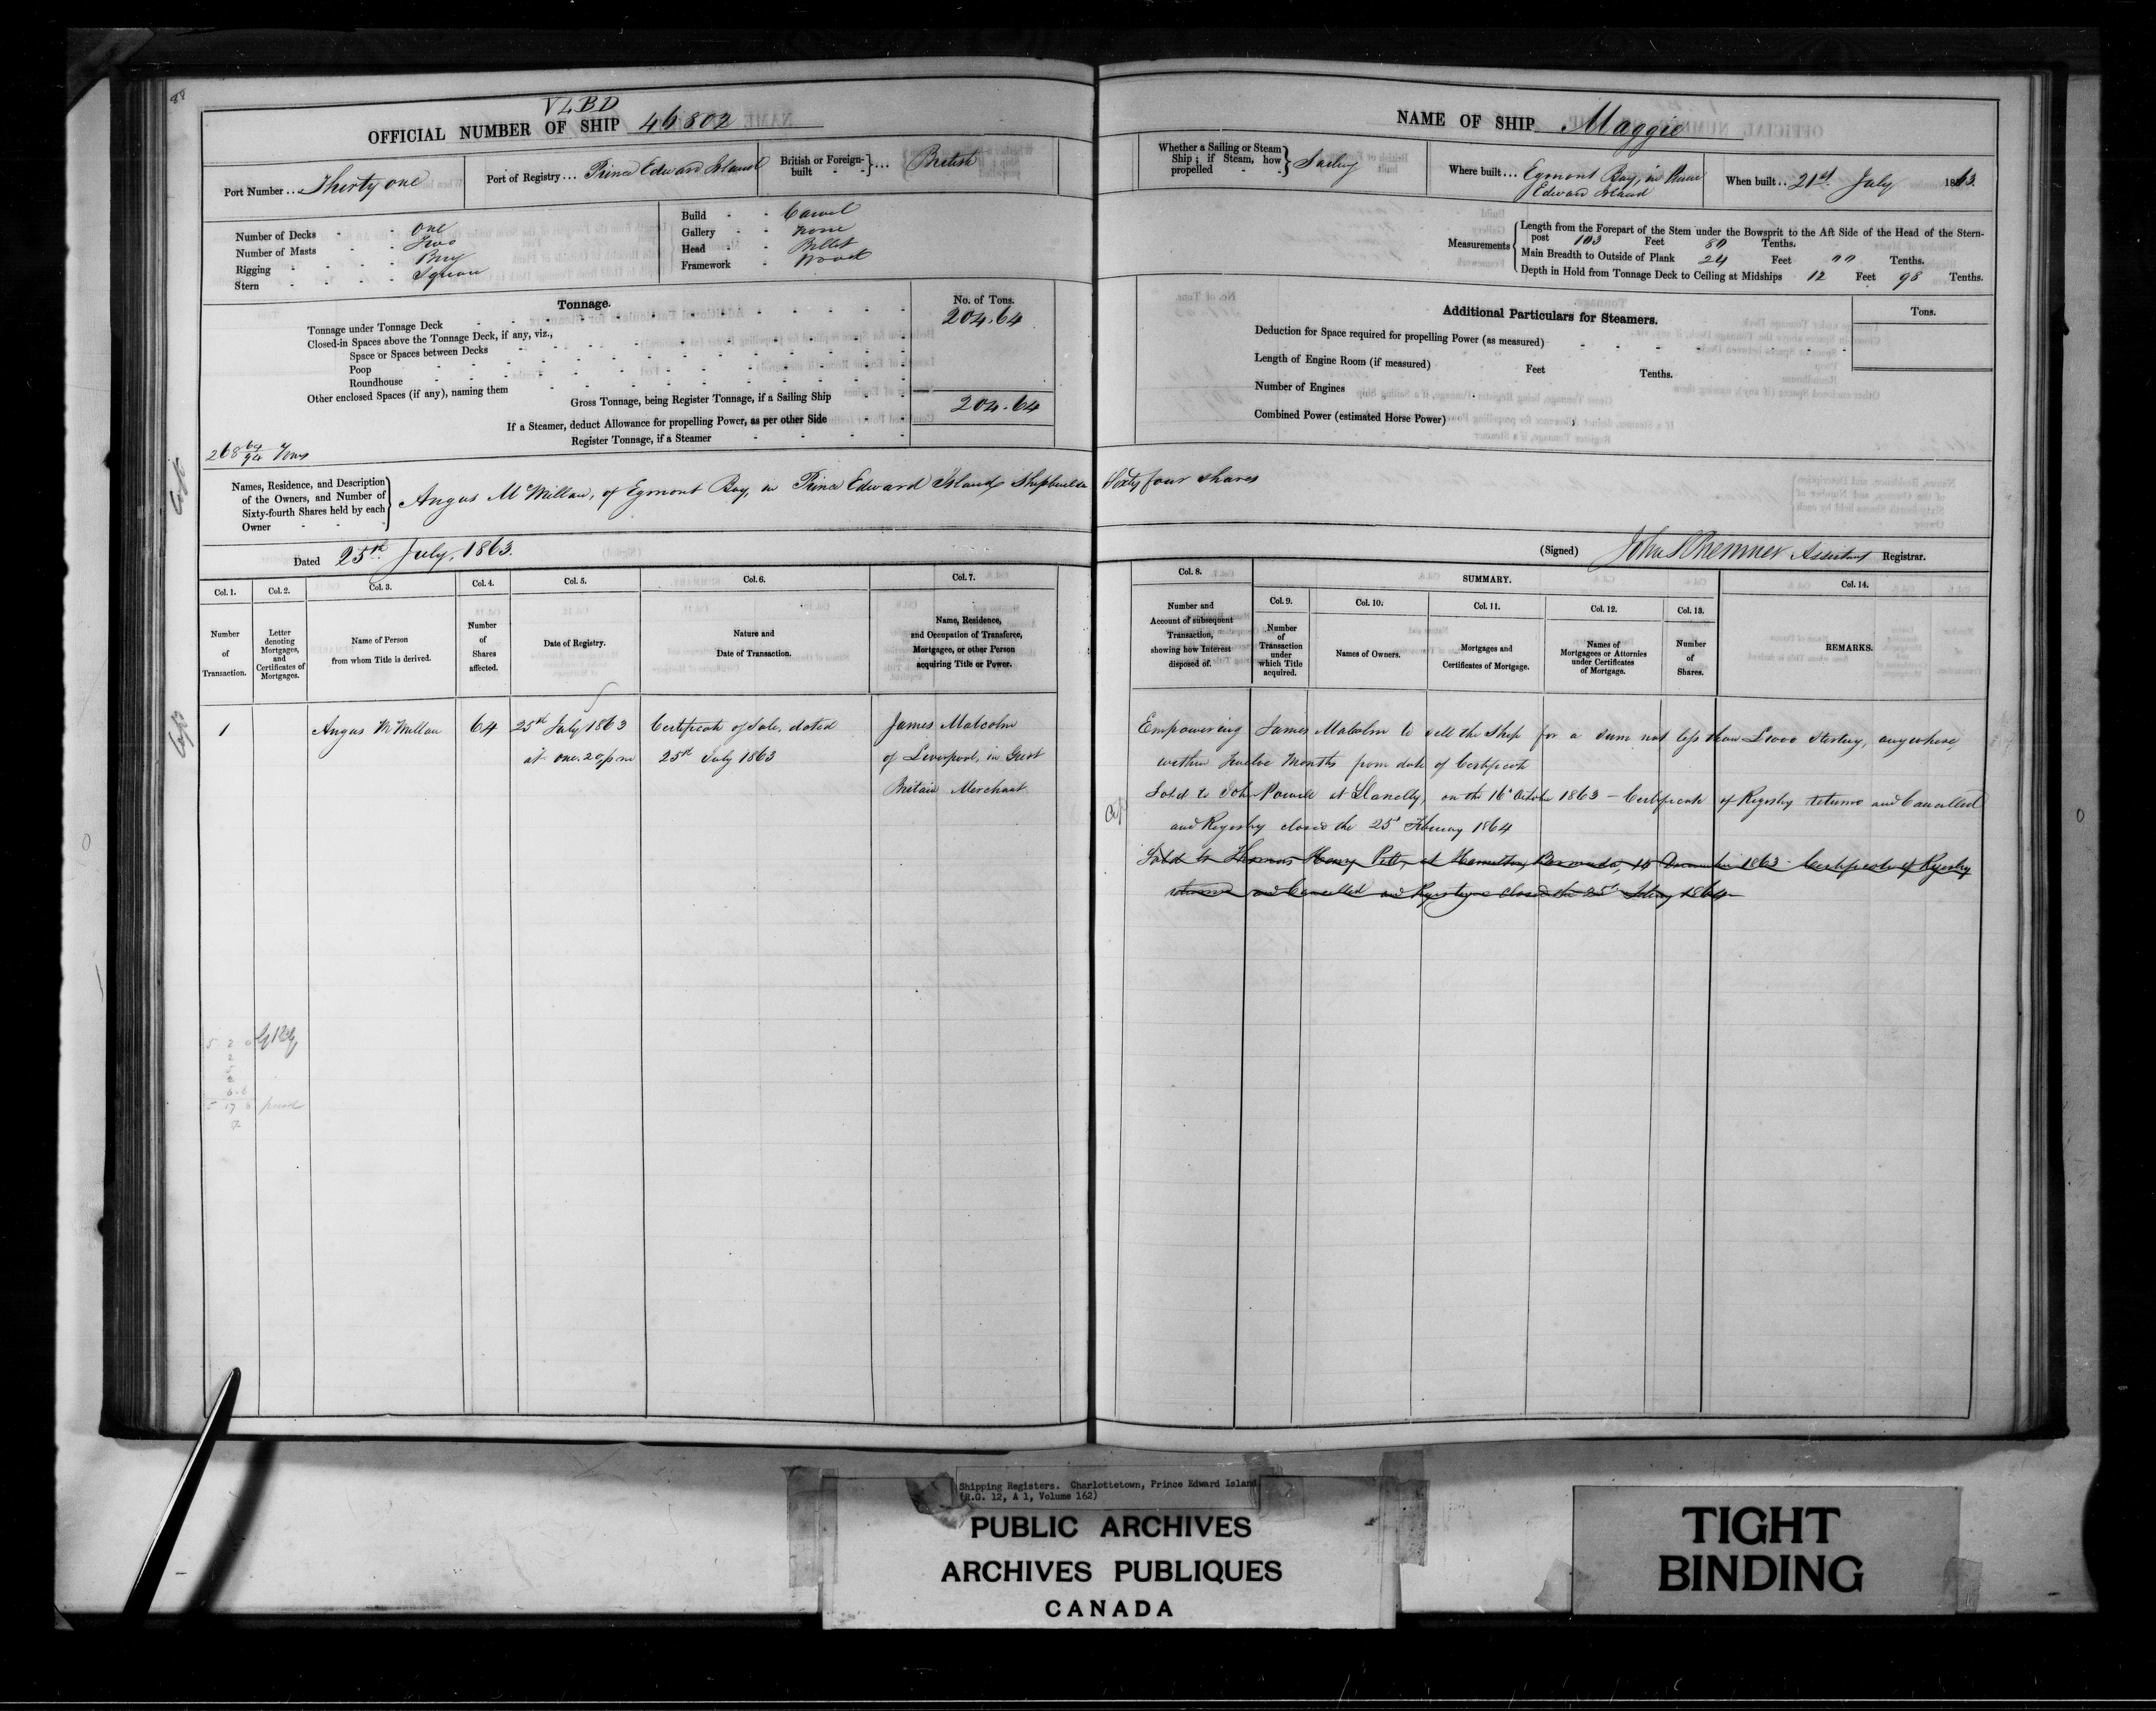 88
VLBD
OFFICIAL NUMBER OF SHIP 46802
Port Number... Thirty one
Port of Registry... Prince Edward Island
British or Foreign-built ... British
Number of Decks - - one
Number of Masts - - Two
Rigging - - - Brig
Stern - - - Square
Build - - Carvel
Gallery - - none
Head - - Billet
Framework - Wood
Tonnage.
No. of Tons.
Tonnage under Tonnage Deck 204.64
Closed-in Spaces above the Tonnage Deck, if any, viz.,
Space or Spaces between Decks
Poop
Roundhouse
Other enclosed Spaces (if any), naming them
Gross Tonnage, being Register Tonnage, if a Sailing Ship 204.64
If a Steamer, deduct Allowance for propelling Power, as per other Side
Register Tonnage, if a Steamer
268 69/94 Tons
Names, Residence, and Description of the Owners, and Number of Sixty-fourth Shares held by each Owner
Angus McMillan, of Egmont Bay, in Prince Edward Island, Shipbuilder Sixty four shares
Dated 25th July, 1863.
Col. 1. Number of Transaction.
Col. 2. Letter denoting Mortgages, and Certificates of Mortgages.
Col. 3. Name of Person from whom Title is derived.
Col. 4. Number of Shares affected.
Col. 5. Date of Registry.
Col. 6. Nature and Date of Transaction.
Col. 7. Name, Residence, and Occupation of Transferee, Mortgagee, or other Person acquiring Title or Power.
1 Angus McMillan 64 25th July 1863 Certificate of Sale, dated James Malcolm
at one.20 pm 25th July 1863 of Liverpool, in Great
Britain Merchant
NAME OF SHIP Maggie
Whether a Sailing or Steam Ship; if Steam, how propelled - - Sailing
Where built... Egmont Bay, in Prince
Edward Island
When built.. 21st July 1863.
Measurements
Length from the Forepart of the Stem under the Bowsprit to the Aft Side of the Head of the Stern-
post 103 Feet 80 Tenths.
Main Breadth to Outside of Plank 24 Feet Tenths.
Depth in Hold from Tonnage Deck to Ceiling at Midships 12 Feet 98 Tenths.
Additional Particulars for Steamers.
Tons.
Deduction for Space required for propelling Power (as measured)
Length of Engine Room (if measured) Feet Tenths.
Number of Engines
Combined Power (estimated Horse Power)
(Signed) Assistant Registrar.
Col. 8. Number and Account of subsequent Transaction, showing how Interest disposed of.
SUMMARY.
Col. 9. Number of Transaction under which Title acquired.
Col. 10. Names of Owners.
Col. 11. Mortgages and Certificates of Mortgage.
Col. 12. Names of Mortgagees or Attornies under Certificates of Mortgage.
Col. 13. Number of Shares.
Col. 14. REMARKS.
Empowering James Malcolm to sell the Ship for a sum not less than £1000 Sterling, anywhere
within Twelve Months from date of Certificate
Sold to John Powell at Llanelly, on the 16th October 1863 - Certificate of Registry returned and Cancelled
and Registry closed the 25th February 1864
Sold to Thomas Henry Pitt, at Hamilton, Bermuda, 14 December 1863 - Certificate of Registry
returned and Cancelled and Registry closed the 25th February 1864
Shipping Registers. Charlottetown, Prince Edward Island
(R.G. 12, A 1, Volume 162)
PUBLIC ARCHIVES
ARCHIVES PUBLIQUES
CANADA
TIGHT
BINDING